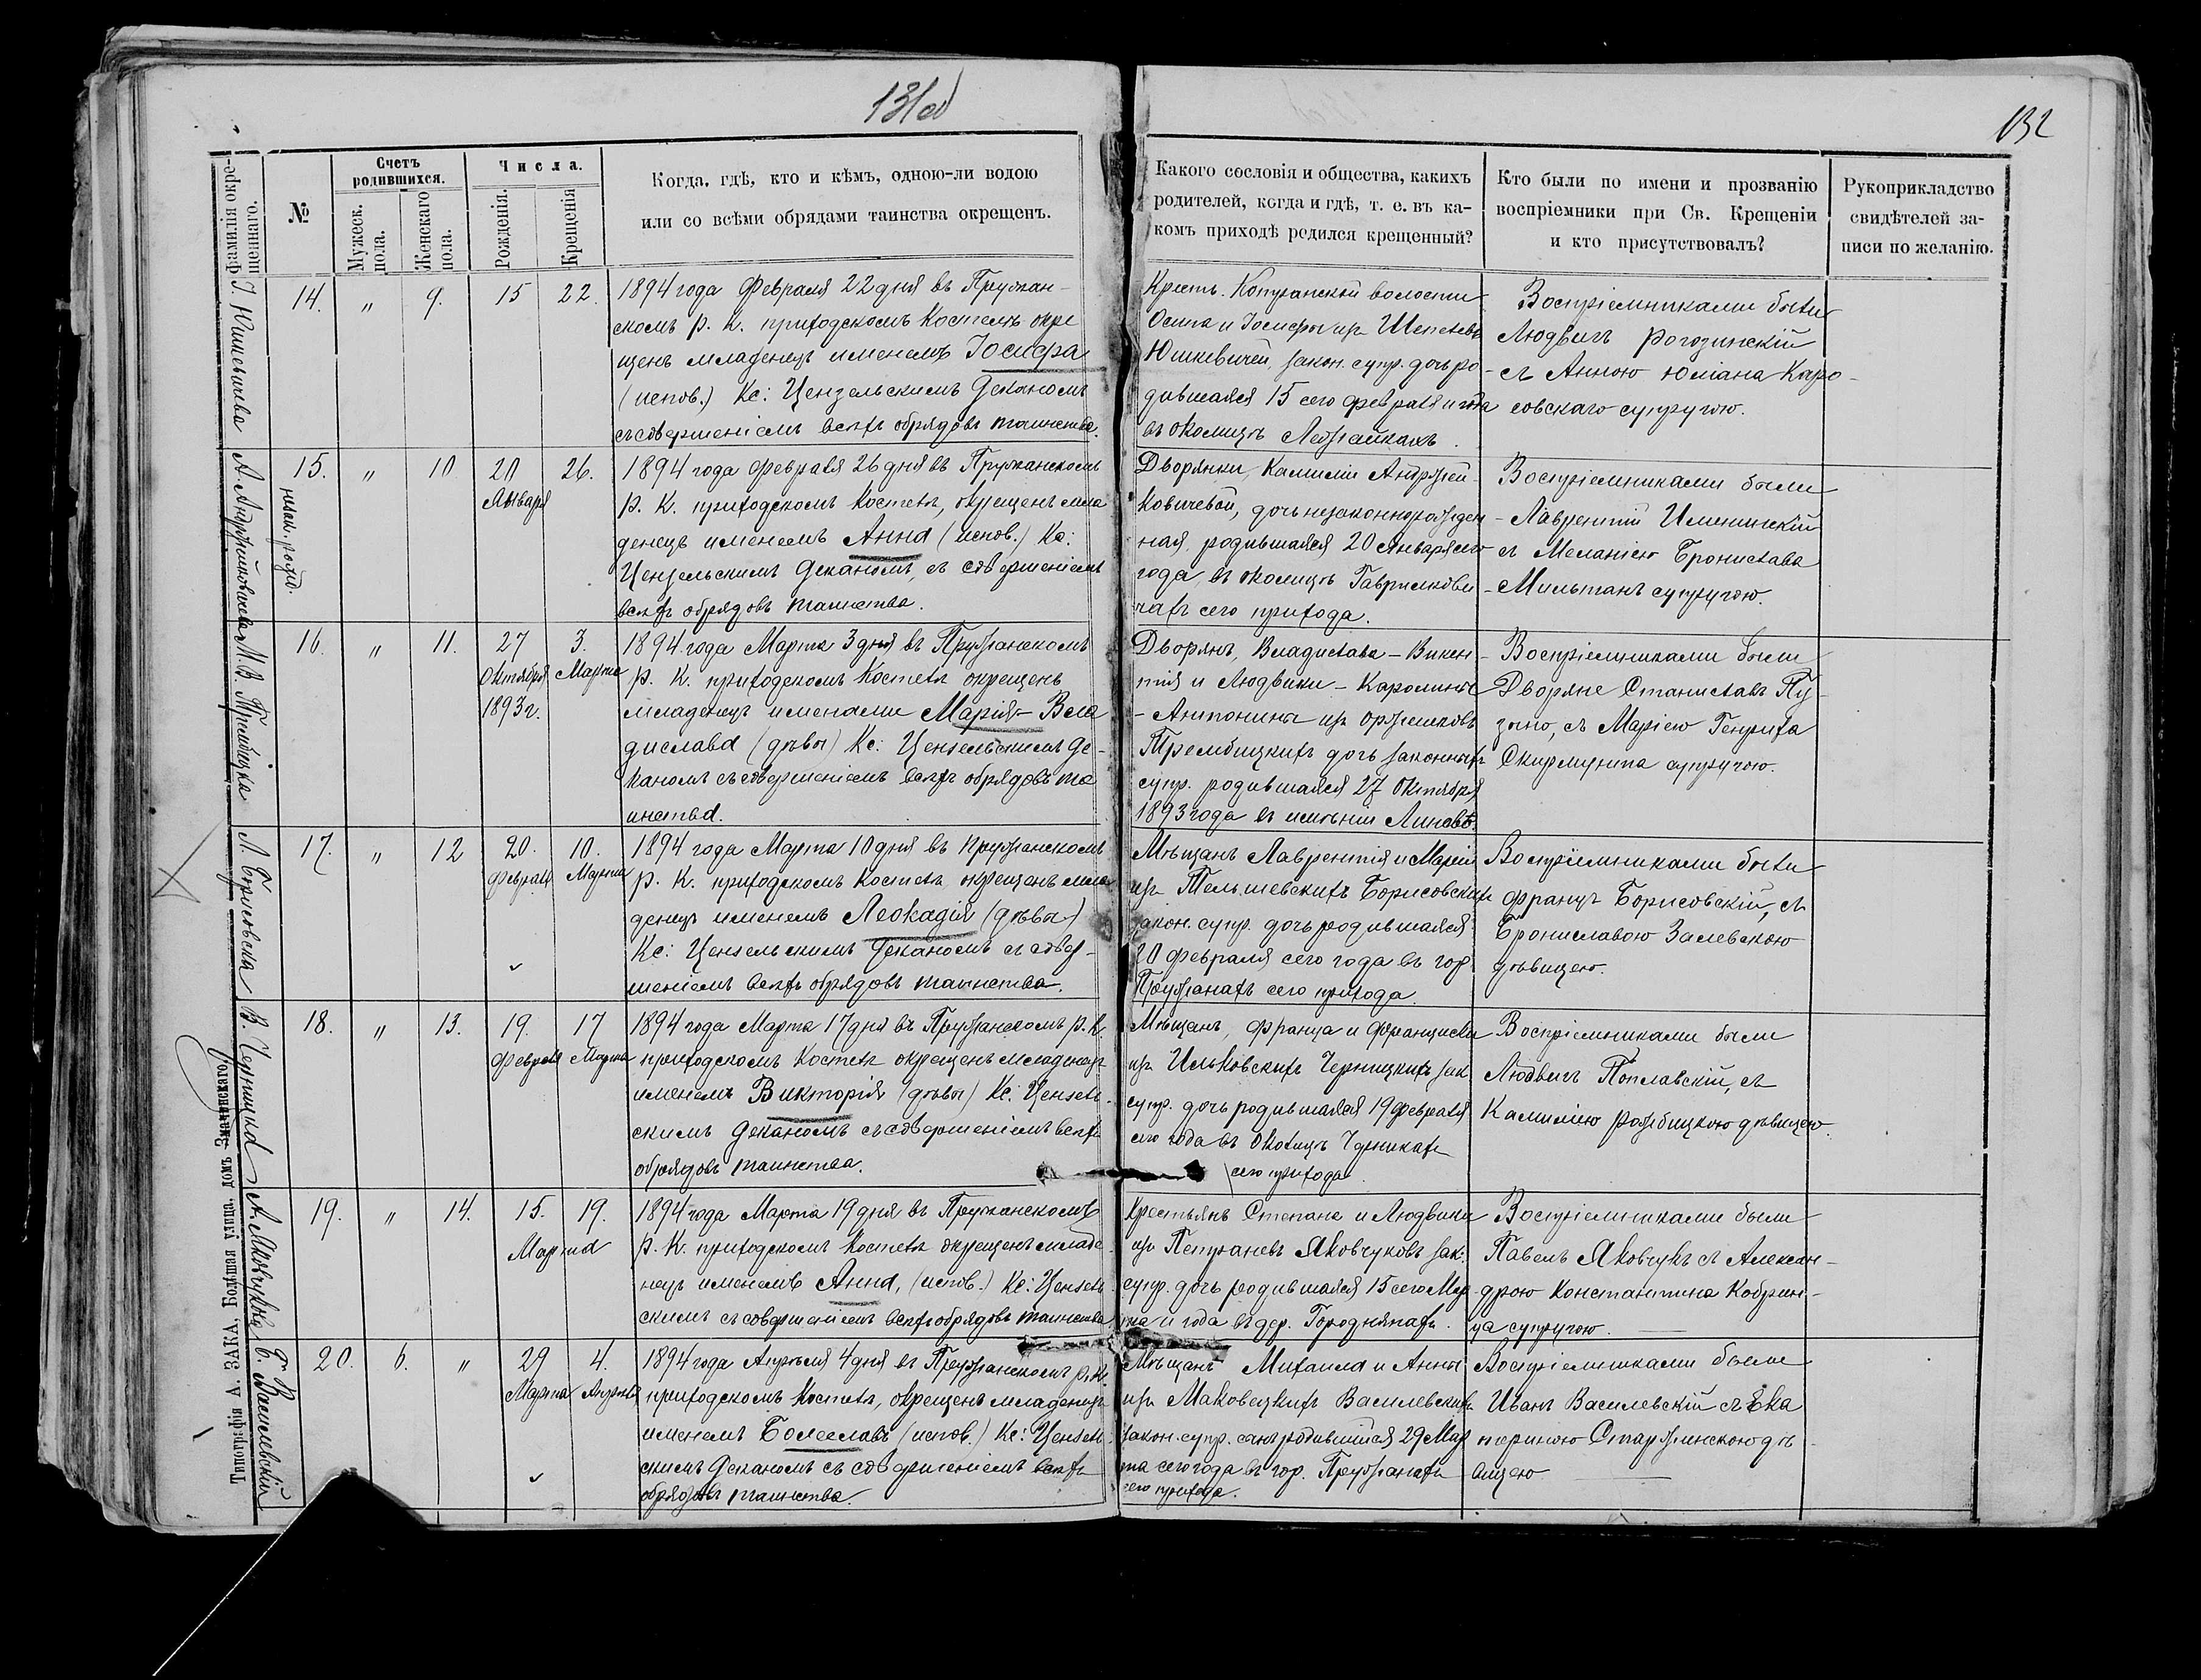 131об
132
Фамилія окре-
щеннаго.
№
Счетъ
родившихся.
Мужеск.
пола.
Женскаго
пола.
Числа.
Рожденія.
Крещенія
Когда, гдѣ, кто и кѣмъ, одною-ли водою
или со всѣми обрядами таинства окрещенъ.
Какого сословія и общества, какихъ
родителей, когда и гдѣ, т. е. въ ка-
комъ приходѣ родился крещенный?
Кто были по имени и прозванію
воспріемники при Св. Крещеніи
и кто присутствовалъ?
Рукоприкладство
свидѣтелей за-
писи по желанію.
І. Юшкевичева
14.
"
9.
15
22.
1894 года Февраля 22 дня въ Пружан-
скомъ Р. К. приходскомъ Костелѣ окре
щенъ младенецъ именемъ Іосифа
(испов.) Кс: Цензельскимъ Деканомъ
съ совершеніемъ всѣхъ обрядовъ таинства.
Крест. Котранской волости
Осипа и Іосифы изъ Шепелевъ
Юшкевичей, закон. супр. дочь ро-
дившаяся 15 сего февраля и года
въ околицѣ Лебзайкахъ.
Воспріемниками были
Людвигъ Рогозинскій
съ Анною Юліана Каро-
совскаго супругою.
А. Андржейковичева
15.
незак. рожд.
"
10
20
Января
26.
1894 года февраля 26 дня въ Пружанскомъ
Р. К. приходскомъ Костелѣ, окрещенъ мла
денецъ именемъ Анна (испов.) Кс:
Цензельскимъ Деканомъ, съ совершеніемъ
всѣхъ обрядовъ таинства.
Дворянки, Камиліи Андржей-
ковичевой, дочь незаконнорожден-
ная, родившаяся 20 Января сего
года, въ околицѣ Гаврилкови-
чахъ сего прихода.
Воспріемниками были
Лаврентій Именинскій
съ Меланіею Бронислава
Мильтанъ супругою.
М. В. Трембицка
16.
"
11.
27
Октября
1893 г.
3.
Марта
1894 года Марта 3 дня въ Пружанскомъ
Р. К. приходскомъ Костелѣ окрещенъ
младенецъ именами Марія-Вла
дислава (дѣвы) Кс: Цензельскимъ Де-
каномъ съ совершеніемъ всѣхъ обрядовъ та
инства.
Дворянъ, Владислава-Викен-
тія и Людвики-Каролины
-Антонины изъ Оржешковъ
Трембицкихъ дочь законныхъ
супр. родившаяся 27 Октября
1893 года въ имѣніи Линовѣ.
Воспріемниками были
Дворяне Станиславъ Пу-
зыно, съ Маріею Генриха
Скирмунта супругою.
Л. Борисовска
17.
"
12
20.
февраля
10.
Марта
1894 года Марта 10 дня въ Пружанскомъ
Р. К. приходскомъ Костелѣ окрещенъ мла
денецъ именемъ Леокадія (дѣвы)
Кс: Цензельскимъ Деканомъ съ совер-
шеніемъ всѣхъ обрядовъ таинства.
Мѣщанъ Лаврентія и Маріи
изъ Тельшевскихъ Борисовскихъ
закон. супр. дочь родившаяся
20 февраля сего года въ гор
Пружанахъ сего прихода.
Воспріемниками были
Францъ Борисовскій, съ
Брониславою Залевскою
дѣвицею.
В. Черницка
18.
"
13.
19.
Февраля
17
Марта
1894 года Марта 17 дня въ Пружанскомъ Р. К.
приходскомъ Костелѣ окрещенъ младенецъ
именемъ Викторія (дѣвы) Кс: Цензель-
скимъ Деканомъ съ совершеніемъ всѣхъ
обрядовъ таинства.
Мѣщанъ, Франца и Францишки
изъ Ильковскихъ Черницкихъ зак
супр. дочь родившаяся 19 февраля
сего года въ околицѣ Черникахъ
сего прихода.
Воспріемниками были
Людвигъ Поплавскій, съ
Камиліею Ражбицкою дѣвицею.
А. Яковчукова
19.
"
14.
15.
19.
Марта
1894 года Марта 19 дня въ Пружанскомъ
Р. К. приходскомъ Костелѣ окрещенъ младе-
нецъ именемъ Анна, (испов.) Кс: Цензель-
скимъ съ совершеніемъ всѣхъ обрядовъ таинства.
Крестьянъ Степана и Людвики
изъ Петрановъ Яковчуковъ зак.
супр. дочь родившаяся 15 сего Мар
та и года въ дер. Городнянахъ.
Воспріемниками были
Павелъ Яковчукъ съ Алексан-
дрою Константина Кобрин-
ца супругою.
Б. Василевскій
20.
6.
"
29
Марта
4.
Апрѣля
1894 года Апрѣля 4 дня въ Пружанскомъ Р. К.
приходскомъ Костелѣ, окрещенъ младенецъ
именемъ Болеславъ (испов.) Кс: Цензель-
скимъ Деканомъ съ совершеніемъ всѣхъ
обрядовъ таинства.
Мѣщанъ Михаила и Анны
изъ Маковецкихъ Василевскихъ
закон. супр. сынъ родившійся 29 Мар
та сего года въ гор. Пружанахъ
сего прихода.
Воспріемниками были
Иванъ Василевскій съ Ека
териною Старжинскою дѣ-
вицею
Типографія А. ЗАКА, Большая улица, домъ Значинскаго.